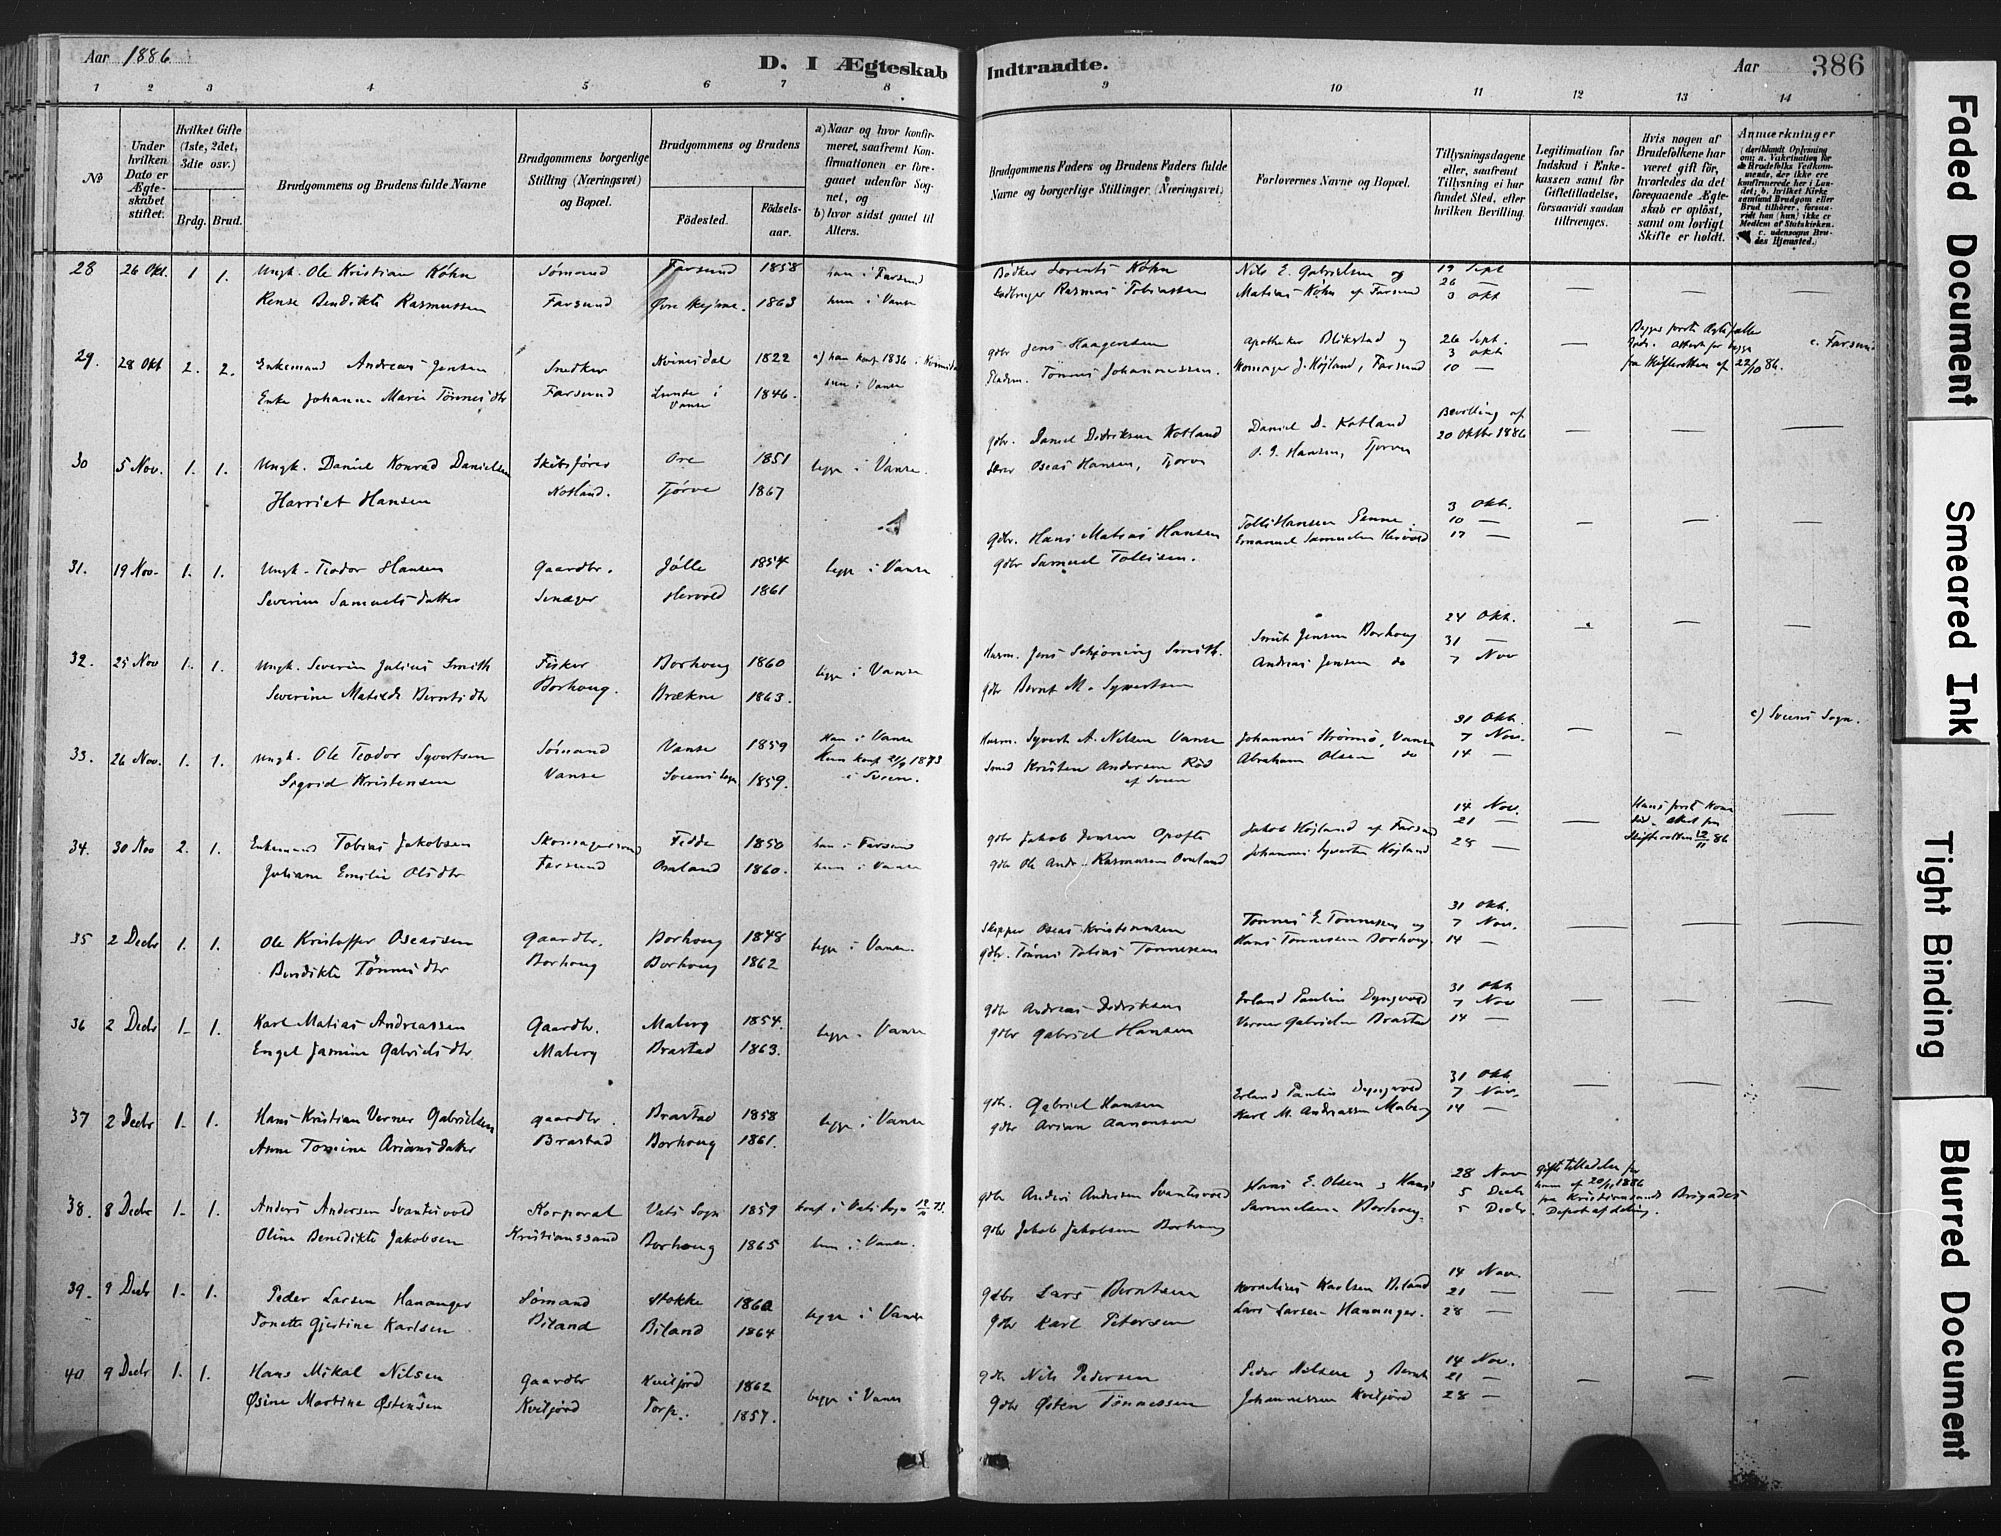 Aar 1886
D. I Ægteskab Indtraadte.
Aar 386
1 2 3 4 5 6 7 8 9 10 11 12 13 14
No
Under hvilken Dato er Ægteskabet stiftet.
Hvilket Gifte (1ste, 2det, 3die osv.)
Brdg. Brud.
Brudgommens og Brudens fulde Navne
Brudgommens borgerlige Stilling (Næringsvei) og Bopæl.
Brudgommens og Brudens
Fødested. Fødselsaar.
a) Naar og hvor konfirmeret, saafremt Konfirmationen er foregaaet udenfor Sognet, og
b) hvor sidst gaaet til Alters.
Brudgommens Faders og Brudens Faders fulde Navne og borgerlige Stillinger (Næringsvei)
Forlovernes Navne og Bopæl.
Tillysningsdagene eller, saafremt Tillysning ei har fundet Sted, efter hvilken Bevilling.
Legitimation for Indskud i Enkekassen samt for Giftetilladelse, forsaavidt saadan tiltrænges.
Hvis nogen af Brudefolkene har været gift før, hvorledes da det foregaaende Ægteskab er opløst, samt om lovligt Skifte er holdt.
Anmærkninger
28 26 Okt. 1 1. Ungk. Ole Kristian Køhn Sømand Farsund 1858 han i Farsund Bødker Lorents Køhn Nils E. Gabrielsen og 19 Sept
Rense Bendikte Rasmussen Farsund Øvre 1863 hun i Vanse Rasmus Tobiassen Matias Køhn af Farsund 26 — 3 Okt
29. 28 Okt 2. 2. Enkemand Andreas Jensen Snedker Kvinesdal 1822 a) han konf 1836 i Kvinesdal gdbr Jens Haagensen Apotheker Blikstad og 26 Sept. 3 Okt. c. Farsund
Enke Johanne Marie Tønnesdtr Farsund Lunde i Vanse 1846. hun i Vanse Tønnes Johannessen. J. Højland, Farsund 10 — fra Skifteretten af 22/10 86.
30 5 Nov. 1. 1. Ungk. Daniel Konrad Danielsen Skibsfører Ore 1851 begge i Vanse. gdbr. Daniel Didriksen Kotland Daniel D. Kotland Bevilling af
Harriet Hansen Tjørve 1867 Oseas Hansen, Tjørve O. J. Hansen, Tjørve 20 Oktbr 1886
31. 19 Nov. 1. 1. Ungk. Teodor Hansen Gaardbr. Jølle 1854 begge i Vanse gdbr. Hans Matias Hansen Tollis Hansen Penne. 3 Okt. 10 —
Severine Samuelsdatter Hervold 1861 gdbr Samuel Tollisen. Emanuel Samuelsen Hervold 17 —
32. 25 Nov 1. 1. Ungk. Severin Julius Smith Fisker Borhoug 1860 begge i Vanse Husm. Jens Schjøning Smith. Smit Jensen Borhoug 24 Okt. 31 —
Severine Matilde Berntsdtr Borhoug. Brækne 1863. gdbr Bernt M. Syvertsen Andreas Jensen do 7 Nov
33. 26 Nov. 1. 1. Ungk. Ole Teodor Syvertsen Sømand Vanse 1859 Han i Vanse Husm. Syvert A. Nilsen Vanse Johannes Strømsø, Vanse 31 Okt. 7 Nov. c) Sveens Sogn.
Sigvid Kristensen Vanse Sveens Sogn 1859. Hun konf 21/9 1873 i Sveen. Smed Kristen Andersen Rød af Sveen Abraham Olsen do 14 —
34. 30 Nov 2. 1. Enkemand Tobias Jakobsen Skomager Fedde 1850 han i Farsund gdbr Jakob Jensen Opofte Jakob Højland af Farsund 14 Nov. 21 — Hans første Kone død. Skifteretten 12/11 86
Juliane Emilie Olsdtr Farsund Omland 1860. hun i Vanse gdbr Ole Andr. Rasmussen Omland Johannes Syvertsen Højland 28 —
35 2 Decbr 1. 1. Ole Kristoffer Oseassen Gaardbr. Borhoug 1848 begge i Vanse. Skipper Oseas Kristiansen Tønnes E. Tønnesen og 31 Okt. 7 Nov.
Bendikte Tønnesdtr Borhoug Borhoug 1862 gdbr. Tønnes Tobias Tønnesen Hans Tønnesen Borhoug. 14 —
36 2 Decbr 1. 1. Karl Matias Andreassen Gaardbr. Maberg 1854. begge i Vanse gdbr Andreas Didriksen Erland Paulin Dyngvold 31 Okt 7 Nov
Engel Jasmine Gabrielsdtr Maberg Brastad 1863. gdbr Gabriel Hansen Verner Gabrielsen Brastad 14 —
37 2 Decbr 1. 1. Hans Kristian Verner Gabrielsen gaardbr. Brastad 1858 begge i Vanse gdbr. Gabriel Hansen Erland Paulin Dyngvold 31 Okt. 7 Nov.
Anne Tomine Ariansdatter Brastad Borhoug 1861. gdbr Arian Aanonsen Karl M. Andreassen Maberg 14 —
38. 8 Decbr 1. 1. Anders Andersen Svantesvold Korporal Vats Sogn 1859 konf i Vats Sogn 73. gdbr Anders Andersen Svantesvold Hans E. Olsen og Hans 28 Nov 5 Decbr Giftetilladelse for ham af 20/11 1886 fra Kristianssands Brigades Depotafdeling.
Oline Benedikte Jakobsen Kristianssand Borhoug 1865 hun i Vanse. gdbr Jakob Jakobsen Borhoug Samuelsen Borhoug. 5 Decbr.
39. 9 Decbr 1. 1. Peder Larsen Hananger Sømand Stokke 1860 begge i Vanse gdbr Lars Berntsen Kornelius Karlsen Biland 14 Nov. 21 —
Tonette Gjertine Karlsen Biland Biland 1864 gdbr Karl Petersen Lars Larsen Hananger. 28 —
40 9 Decbr 1. 1. Hans Mikal Nilsen Gaardbr Kviljord 1862 begge i Vanse gdbr Nils Pedersen Peder Nilsen og Bernt 14 Nov. 21 —
Øsine Martine Østensen Kviljord Torp. 1857. gdbr Østen Tønnessen Johannessen Kviljord 28 —
Faded Document
Smeared Ink
Tight Binding
Blurred Document